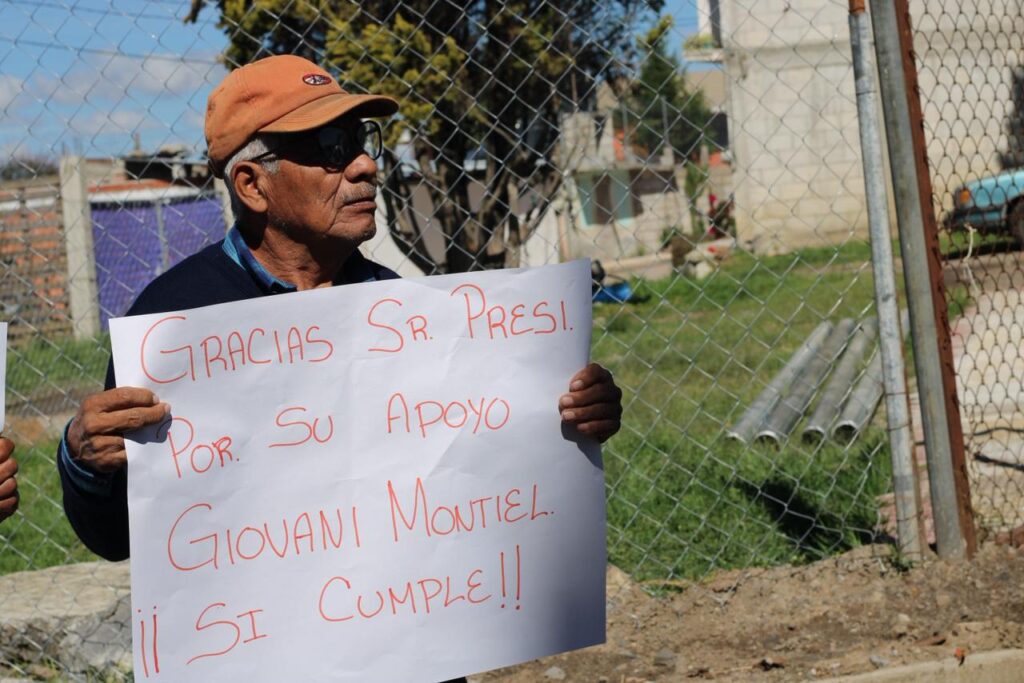 GRACIAS SR. PRESI.
POR. SU APOYO
GIOVANI MONTIEL.
¡¡ SI CUMPLE!!